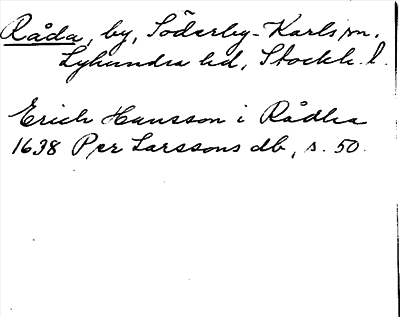 Råda, by, Söderby-Karls sn.
Lyhundra hd, Stockh. l.
Erich Hansson i Rådha
1638 Per Larssons db, s. 50.